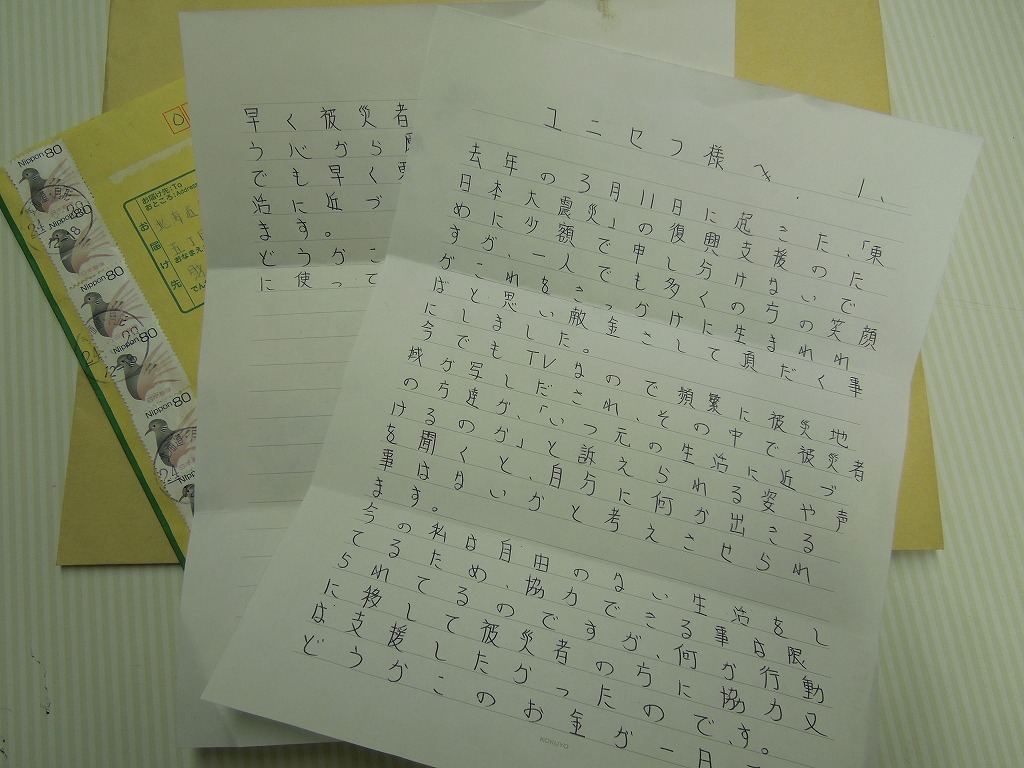 ユニセフ様へ 1、
去年の3月11日に起こた、「東
日本大震災」の復興支援のた
めに少額で申し分けないで
すが、一人でも多くの方の笑顔
がこれをきっかけに生まれれ
ばと思い、敵金さして頂だく事
にしました。
今でもTVなので頻繁に被災地
域が写しだされ、その中で被災者
の方達が、「いつ元の生活に近づ
けるのか」と訴えられる姿や声
を聞くと、自分に何か出きる
事はないかと考えさせられ
ます。
今の私は自由のない生活をし
てるため、協力できる事は限
られてるのですが、何か行動
に移して被災者の方に協力又
は支援したかったのです。
どうかこのお金が一日
KOKUYO
早く被災者
う心から
でも早く
活に近づ
ます。
どうかこ
に使って
Nippon 80
Nippon 80
Nippon 80
Nippon 80
Nippon 80
お届け先:To
おところ:Address
お届け先
北海道
おなまえ